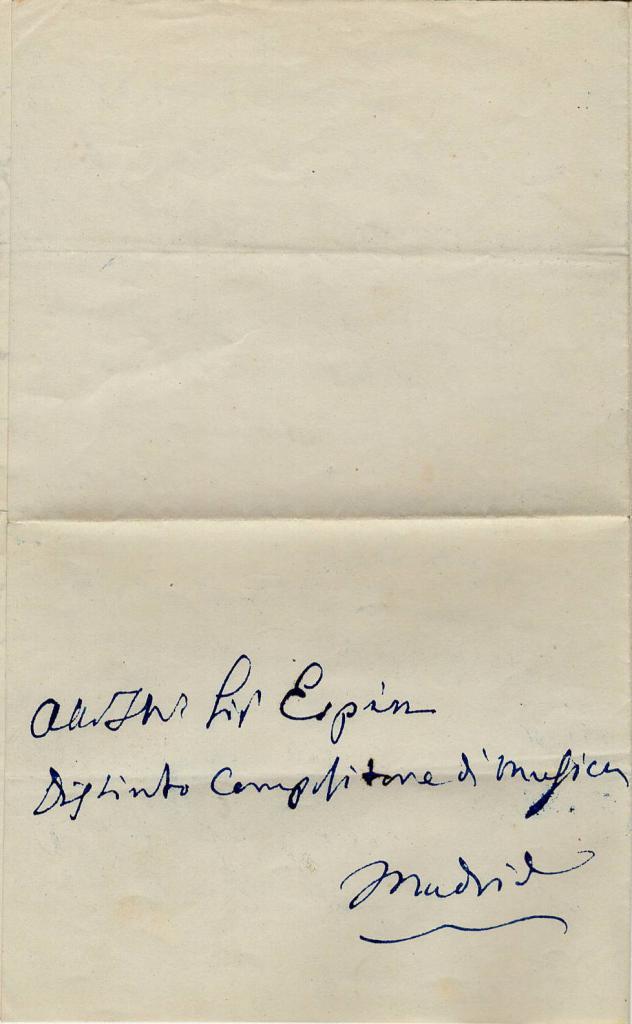 All'Ill.mo Sig. Espin
Distinto Compositore di Musica
Madrid